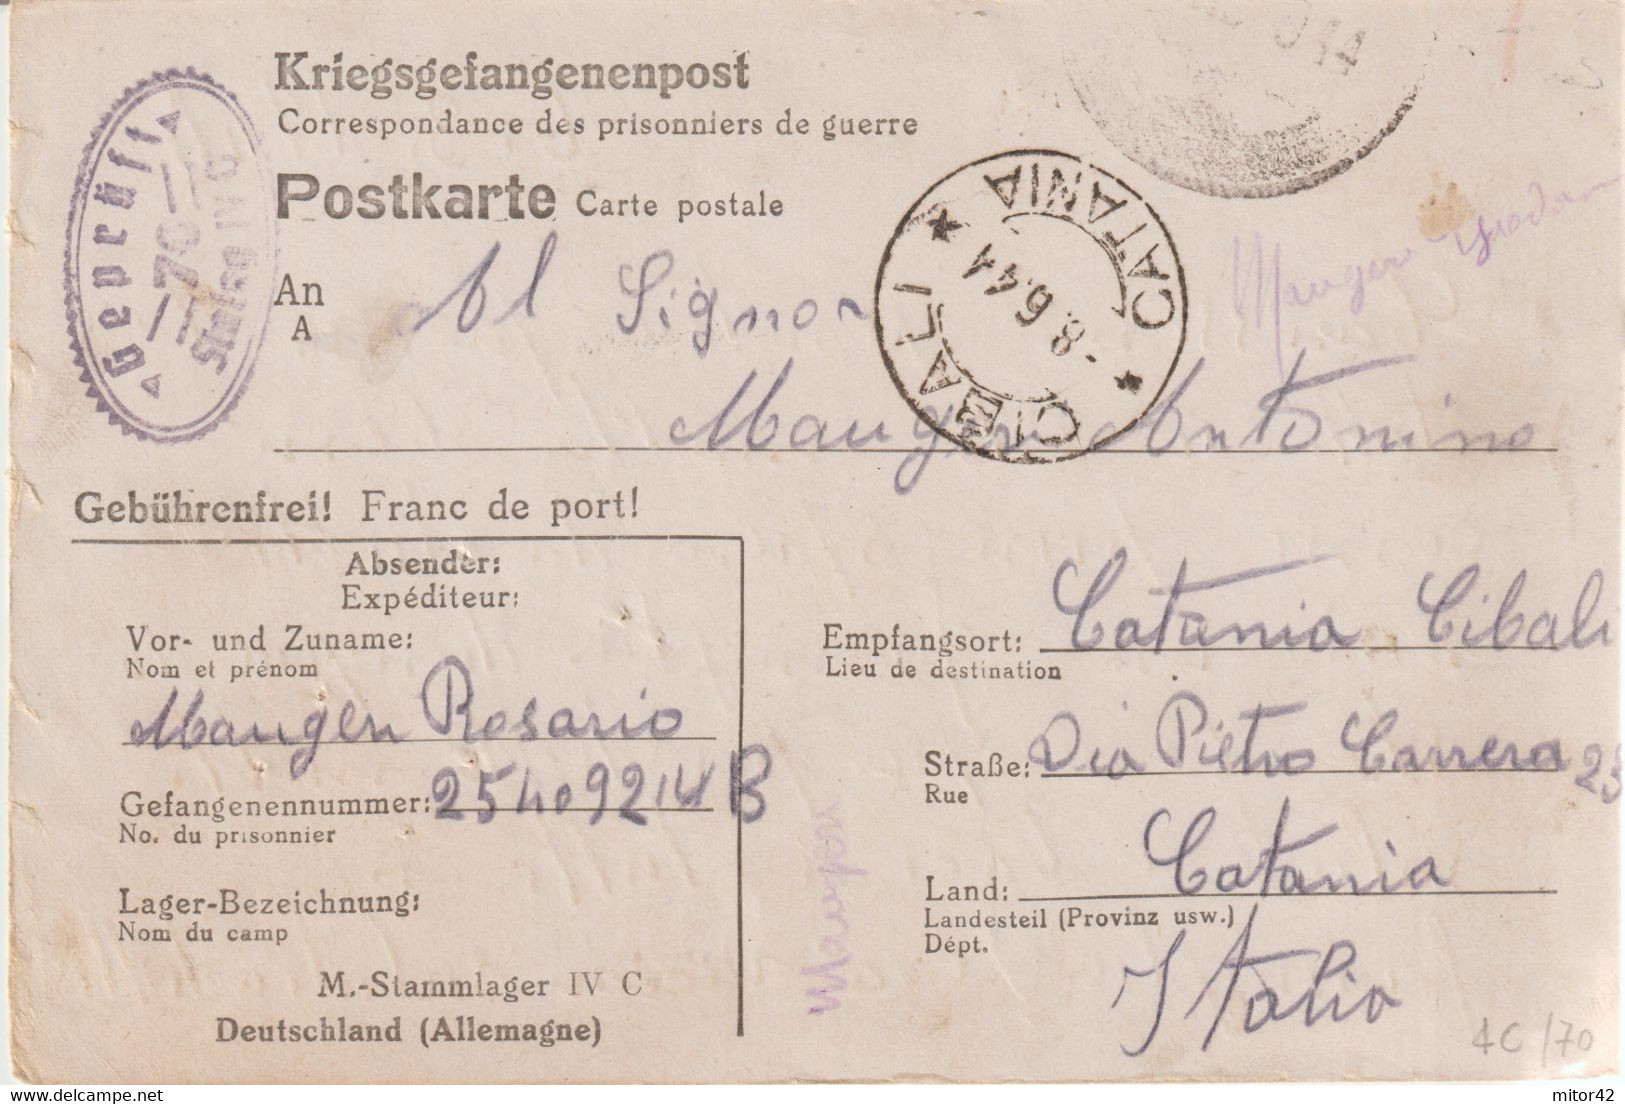 Kriegsgefangenenpost
Correspondance des prisonniers de guerre
Postkarte Carte postale
Geprüft
70
Stalag IV C
An
A
Al Signor
Mauger Antonino
CIBALI * CATANIA *
-8.6.44
44
Mauger
Gebührenfrei! Franc de port!
Absender:
Expéditeur:
Vor- und Zuname:
Nom et prénom
Maugeri Rosario
Gefangenennummer:
No. du prisonnier
Lager-Bezeichnung:
Nom du camp
M.-Stammlager IV C
Deutschland (Allemagne)
Empfangsort: Catania Cibali
Lieu de destination
Straße: Via Pietro Carrera 25
Rue
Land: Catania
Landesteil (Provinz usw.)
Dépt.
Italia
4C/70
mitor42